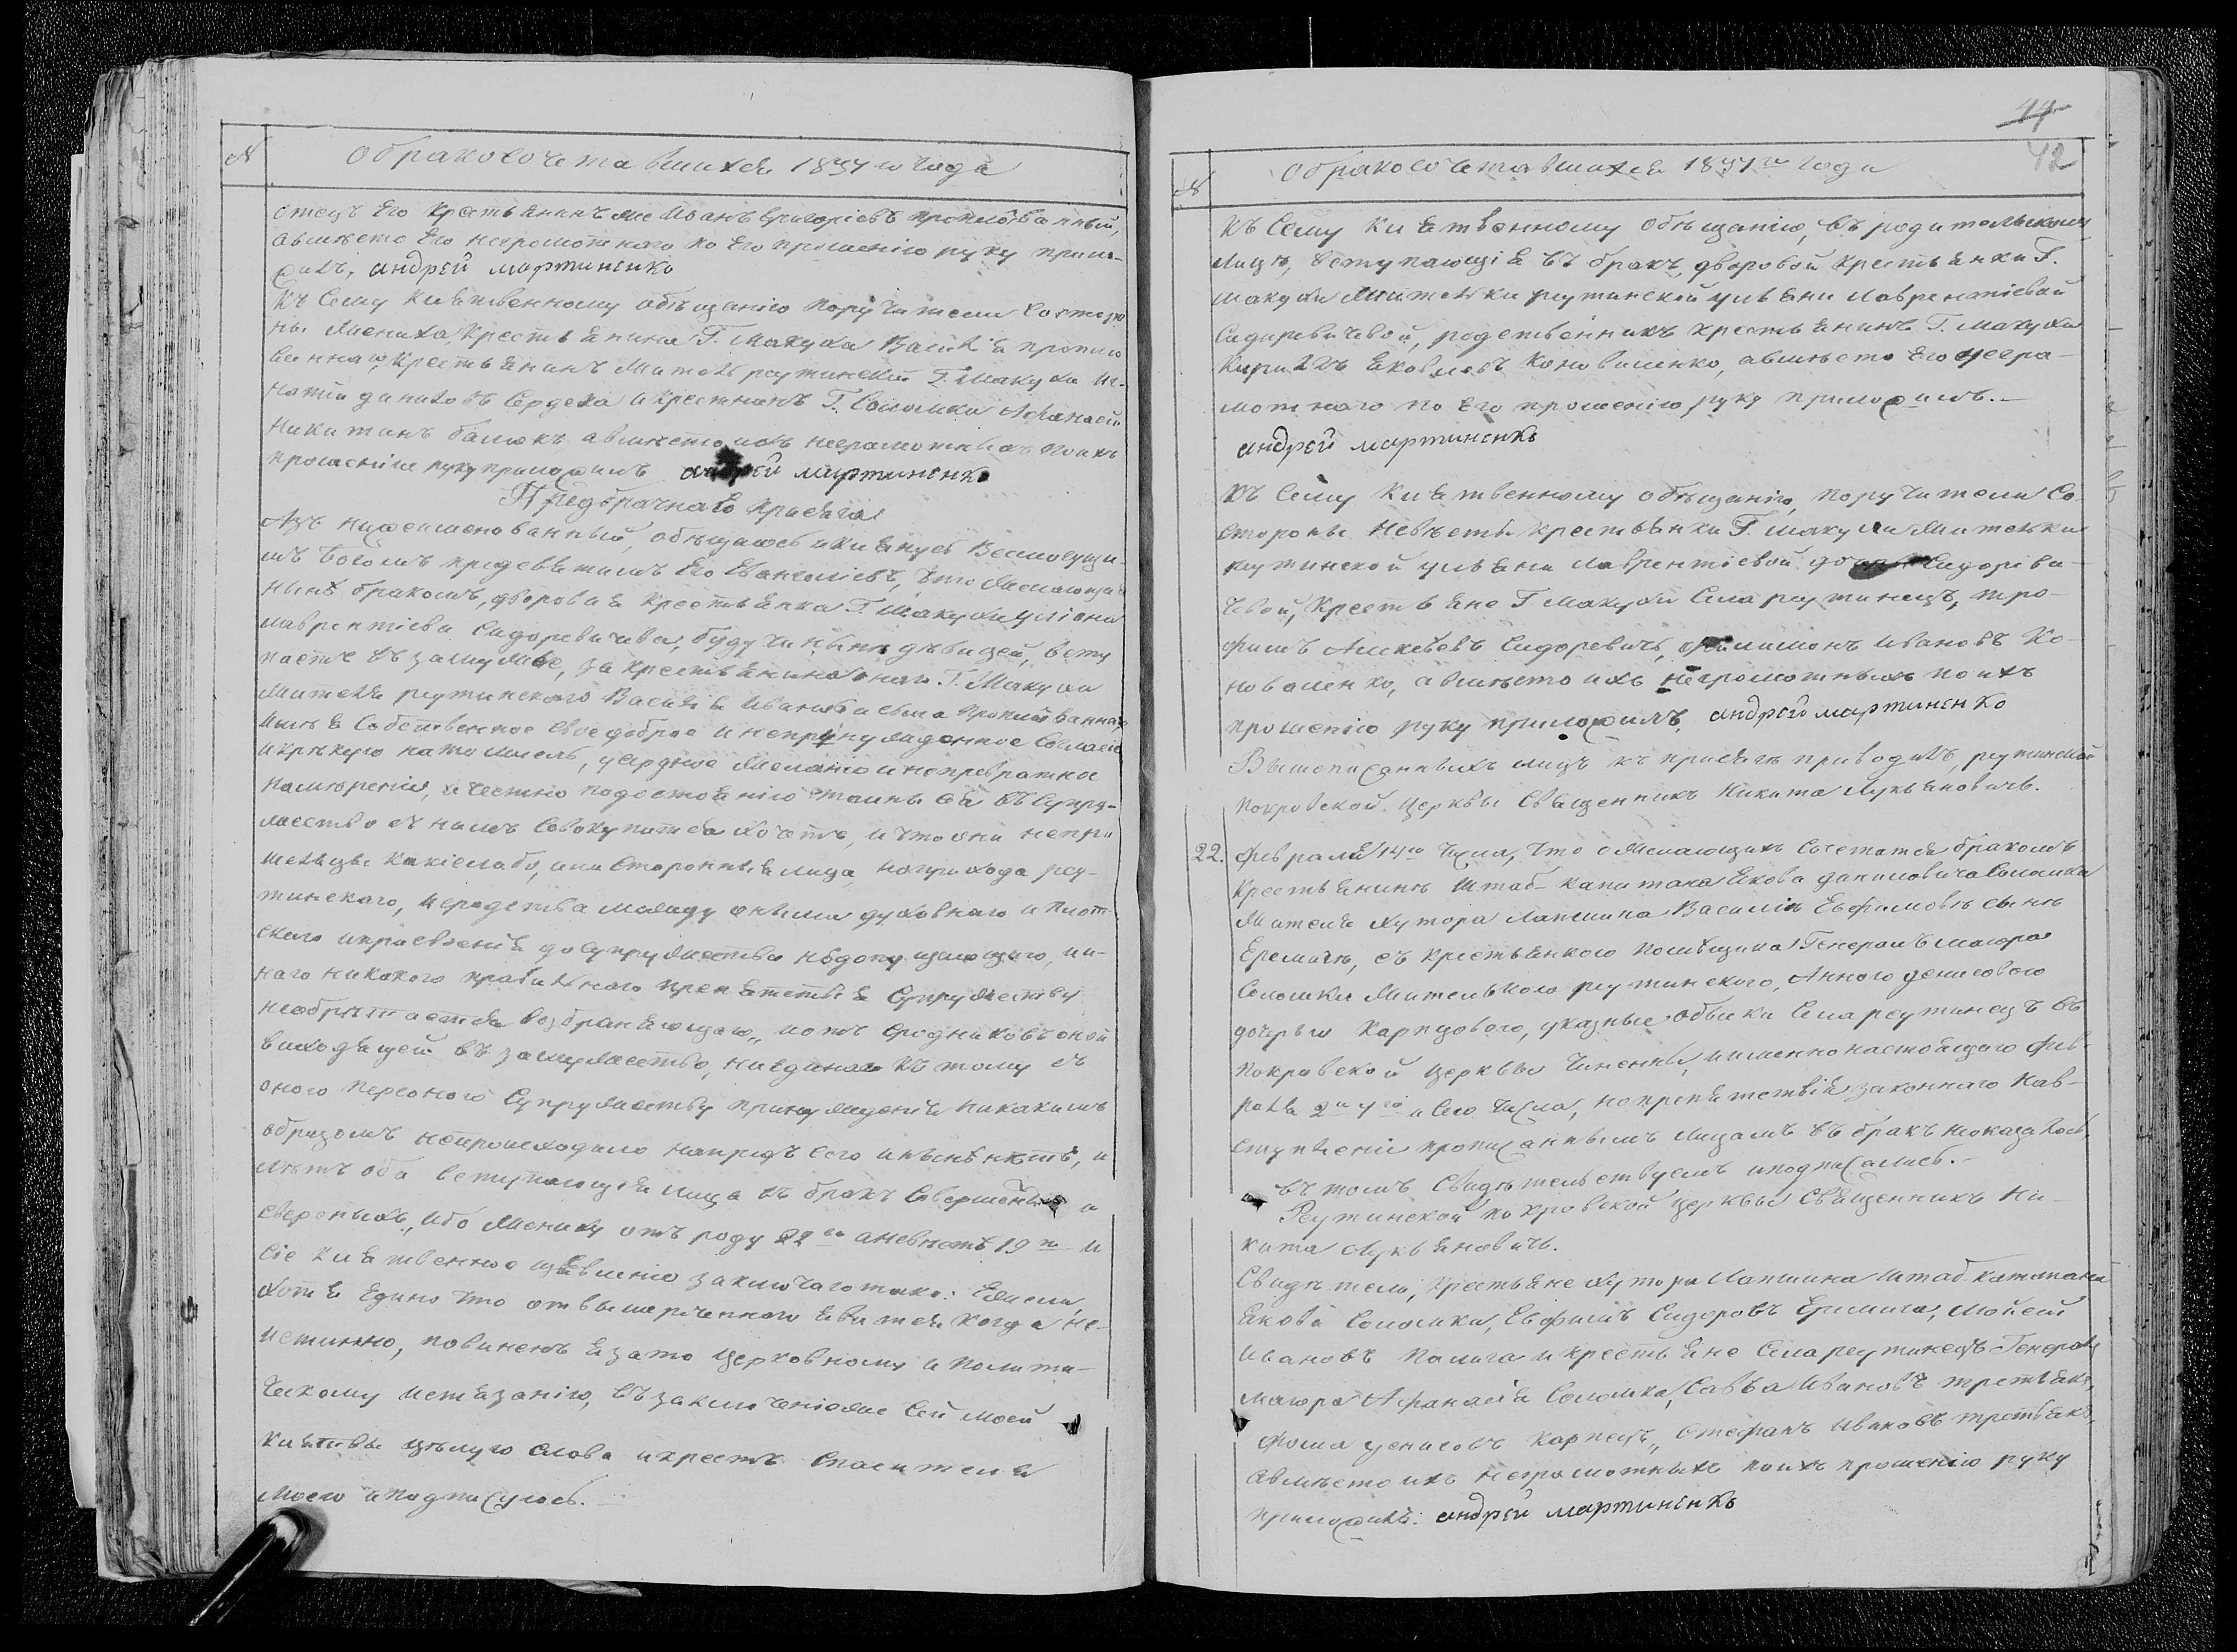 № Обракосочетавшихся 1831го года
отецъ Его Крестьянинъ же Иванъ Григоріевъ
авместо Его неграмотного по Его прошенію руку прило-
жилъ, андрей мартиненко
Къ Сему Клятвенному обещанію поручители Состоро
ны Жениха, Крестьянина Г. Макухи Василія
Крестьянинъ Житель реутинскій Г. Макухи Иг-
натій Даниловъ Сердеха и Крестнинъ Г. Соломки Афанасій
Никитинъ авместо ихъ неграмотныхъ поихъ
прошенію руку приложилъ андрей мартиненко
Предбрачная присяга
Азъ нижеименованный, обещаюсь и клянусь Всемогущи-
мъ Богомъ предсвятымъ Его Евангеліевъ, что желающая
ныне бракомъ, дворовая Крестьянка Г. Макухи Уліяна
лаврентіева Сидоревичева, будучи ныне девицей, всту
паетъ въ замужже, за крестьянина оного Г. Макухи
Жителя реутинского Василія Иванова сына
имея Собственное свое доброе и непринужденное Согласіе
и крепкую на то мысль, усердное желаніе и непревратное
намереніе, и честно подостоянію тайны сея въ Супру-
жество съ нимъ Совокупитися хочетъ, и что они непри
шельцы какіелибо, или Сторонныя лица, но прихода реу-
тинского, и родства между оными духовного и плот-
ского и присвоенія до Супружества недопущающого, ни-
наго никокого правилного препятствія Супружеству
необретается возбраняющого, но отъ сродниковъ оной
виходящей въ замужество, ниединого къ тому съ
оного персоного Супружеству принужденія никакимъ
образомъ непроисходило напредъ сего и ныне нетъ, и
летъ оба вступающія лица въ бракъ Совершенныхъ и
ибо Жениху отъ роду 22 а невесте 19 и
Сіе Клятвенное изъявленіе заключаю тако: Ежели,
хотя Едино что отвышереченного явится когда не-
истинно, повиненъ я зато Церковному и полити-
ческому истязанію, въ заключеніеже Сей моей
Клятвы целую слова и крестъ Спасителя
моего и подписуюсь.
44
42
№ Обракосочетавшихся 1831го года
Къ Сему Клятвенному обещанію, въ родительскомъ
лице, вступающія въ бракъ, дворовой крестьянки Г.
Макухи Жительки реутинской ульяни лаврентіевой
Сидоревичевой, родственникъ крестьянинъ Г. Макухи
Кирилъ Яковлевъ Коноваленко, авместо Его негра-
мотного по Его прошенію руку приложилъ.
андрей мартиненко
Къ Сему Клятвенному обещанію, поручители Со
стороны Невесты крестьянки Г. Макухи Жительки
реутинской ульяни лаврентіевой Сидореви-
чевой, Крестьяне Г. Макухи Села реутинецъ, тро-
фимъ Алексеевъ Сидоревичь, филимонъ Ивановъ Ко-
новаленко, авместо ихъ неграмотныхъ поихъ
прошенію руку приложилъ, андрей мартиненко
Вышеписанныхъ лицъ къ присяге приводилъ, реутинской
покровской Церкви Священникъ Никита Лукьяновичь.
22. февраля 14го числа, что о желающихъ Сочетатся бракомъ
крестьянине Штаб-капитана Якова даниловича Соломки
Жителя Хутора Лапшина Василіи Евфимове сыне
Еремиче, съ крестьянкою помещика Генералъ маюра
Соломки Жителькою реутинского, Анною денисовою
дочерью Карпцовою, указные обыски Села реутинецъ въ
покровской Церкви Чинены, и именно настоящого фев-
раля 2го 4го и Сего Числа, но препятствія законнаго к ав-
ступленію прописаннымъ лицамъ въ бракъ неоказалось,
въ томъ Свидетельствуемъ иподписались.
Реутинской покровской церкви Священникъ Ни-
кита Лукьяновичь.
Свидетели, крестьяне Хутора Лапшина Штаб-капитана
Якова Соломки, Евфимъ Сидоровъ Еремича, Мойсей
Ивановъ и крестьяне Села реутинецъ Генералъ
маюра Афанасія Соломка, Савва Ивановъ третьякъ,
фома денисовъ Карпецъ, Стефанъ Ивановъ третьякъ,
авместо ихъ неграмотныхъ поихъ прошенію руку
приложилъ: андрей мартиненко